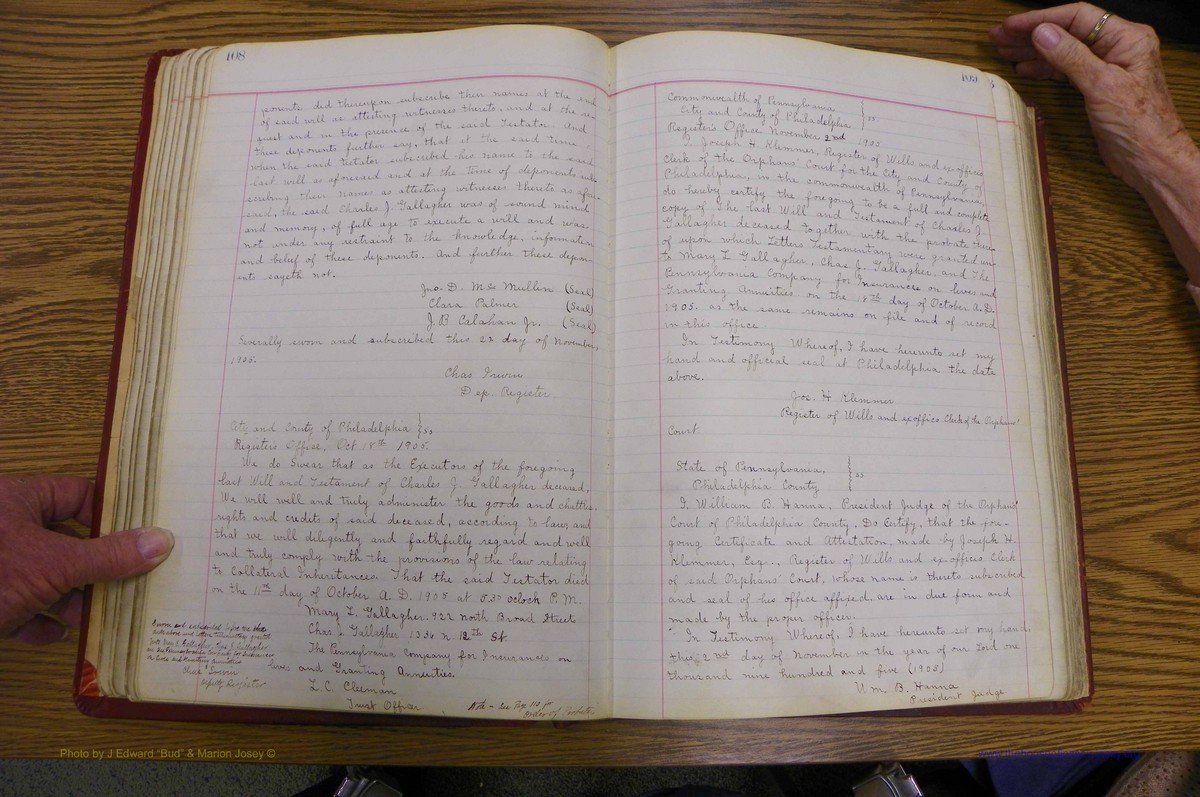 108
ponents did thereupon subscribe their names at the end
of said will as attesting witnesses thereto, and at the re-
quest and in the presence of the said Testator. And
these deponents further say, that at the said time
when the said testator subscribed his name to the said
last will as aforesaid and at the time of deponents sub-
scribing their names as attesting witnesses thereto as afore
said, the said Charles J. Gallagher was of sound mind
and memory, of full age to execute a will and was
not under any restraint to the knowledge, information
and belief of these deponents. And further these depon-
ents sayeth not.
Jno. D. McMullin (Seal)
Clara Palmer (Seal)
J. B. Calahan Jr. (Seal)
Severally sworn and subscribed this 22 day of November,
1905.
Chas Irwin
Dep. Register
City and County of Philadelphia } ss
Register's Office, Oct 18th 1905.
We do Swear that as the Executors of the foregoing
Last Will and Testament of Charles J. Gallagher deceased,
We will well and truly administer the goods and chattels,
rights and credits of said deceased, according to law; and
that we will diligently and faithfully regard and well
and truly comply with the provisions of the law relating
to Collateral Inheritances. That the said Testator died
on the 11th day of October A. D. 1905 at 5.30 oclock P. M.
Mary L. Gallagher. 922 North Broad Street
Chas. J. Gallagher 1336 N. 12th St.
The Pennsylvania Company for Insurances on
Lives and Granting Annuities.
L. C. Cleeman
Trust Officer
Sworn and subscribed before me the
date above and letters testamentary granted
unto Mary L. Gallagher, Chas. J. Gallagher
and the Pennsylvania Company for Insurances
on Lives and Granting Annuities
Chas. Irwin
Deputy Register
Note - See Page 110 for
order of Probate
109
Commonwealth of Pennsylvania
City and County of Philadelphia } ss
Register's Office November 2nd 1905
I, Joseph H. Klemmer, Register of Wills and ex-officio
Clerk of the Orphans' Court for the City and County of
Philadelphia, in the commonwealth of Pennsylvania,
do hereby certify the foregoing to be a full and complete
copy of the last Will and Testament of Charles J.
Gallagher deceased together with the probate there-
of upon which Letters Testamentary were granted un-
to Mary L. Gallagher, Chas J. Gallagher, and The
Pennsylvania Company for Insurances on lives and
Granting Annuities on the 18th day of October A. D.
1905. as the same remains on file and of record
in this office.
In Testimony Whereof, I have hereunto set my
hand and official seal at Philadelphia the date
above.
Jos. H Klemmer
Register of Wills and ex officio Clerk of the Orphans'
Court
State of Pennsylvania,
Philadelphia County } ss
I, William B. Hanna, President Judge of the Orphans'
Court of Philadelphia County, Do Certify, that the fore-
going Certificate and Attestation, made by Joseph H.
Klemmer, Esq., Register of Wills and ex-officio Clerk
of said Orphans' Court, whose name is thereto subscribed
and seal of his office affixed, are in due form and
made by the proper officer.
In Testimony Whereof, I have hereunto set my hand,
this 2nd day of November in the year of our Lord one
thousand nine hundred and five (1905)
Wm. B. Hanna
President Judge
Photo by J Edward "Bud" & Marion Josey ©